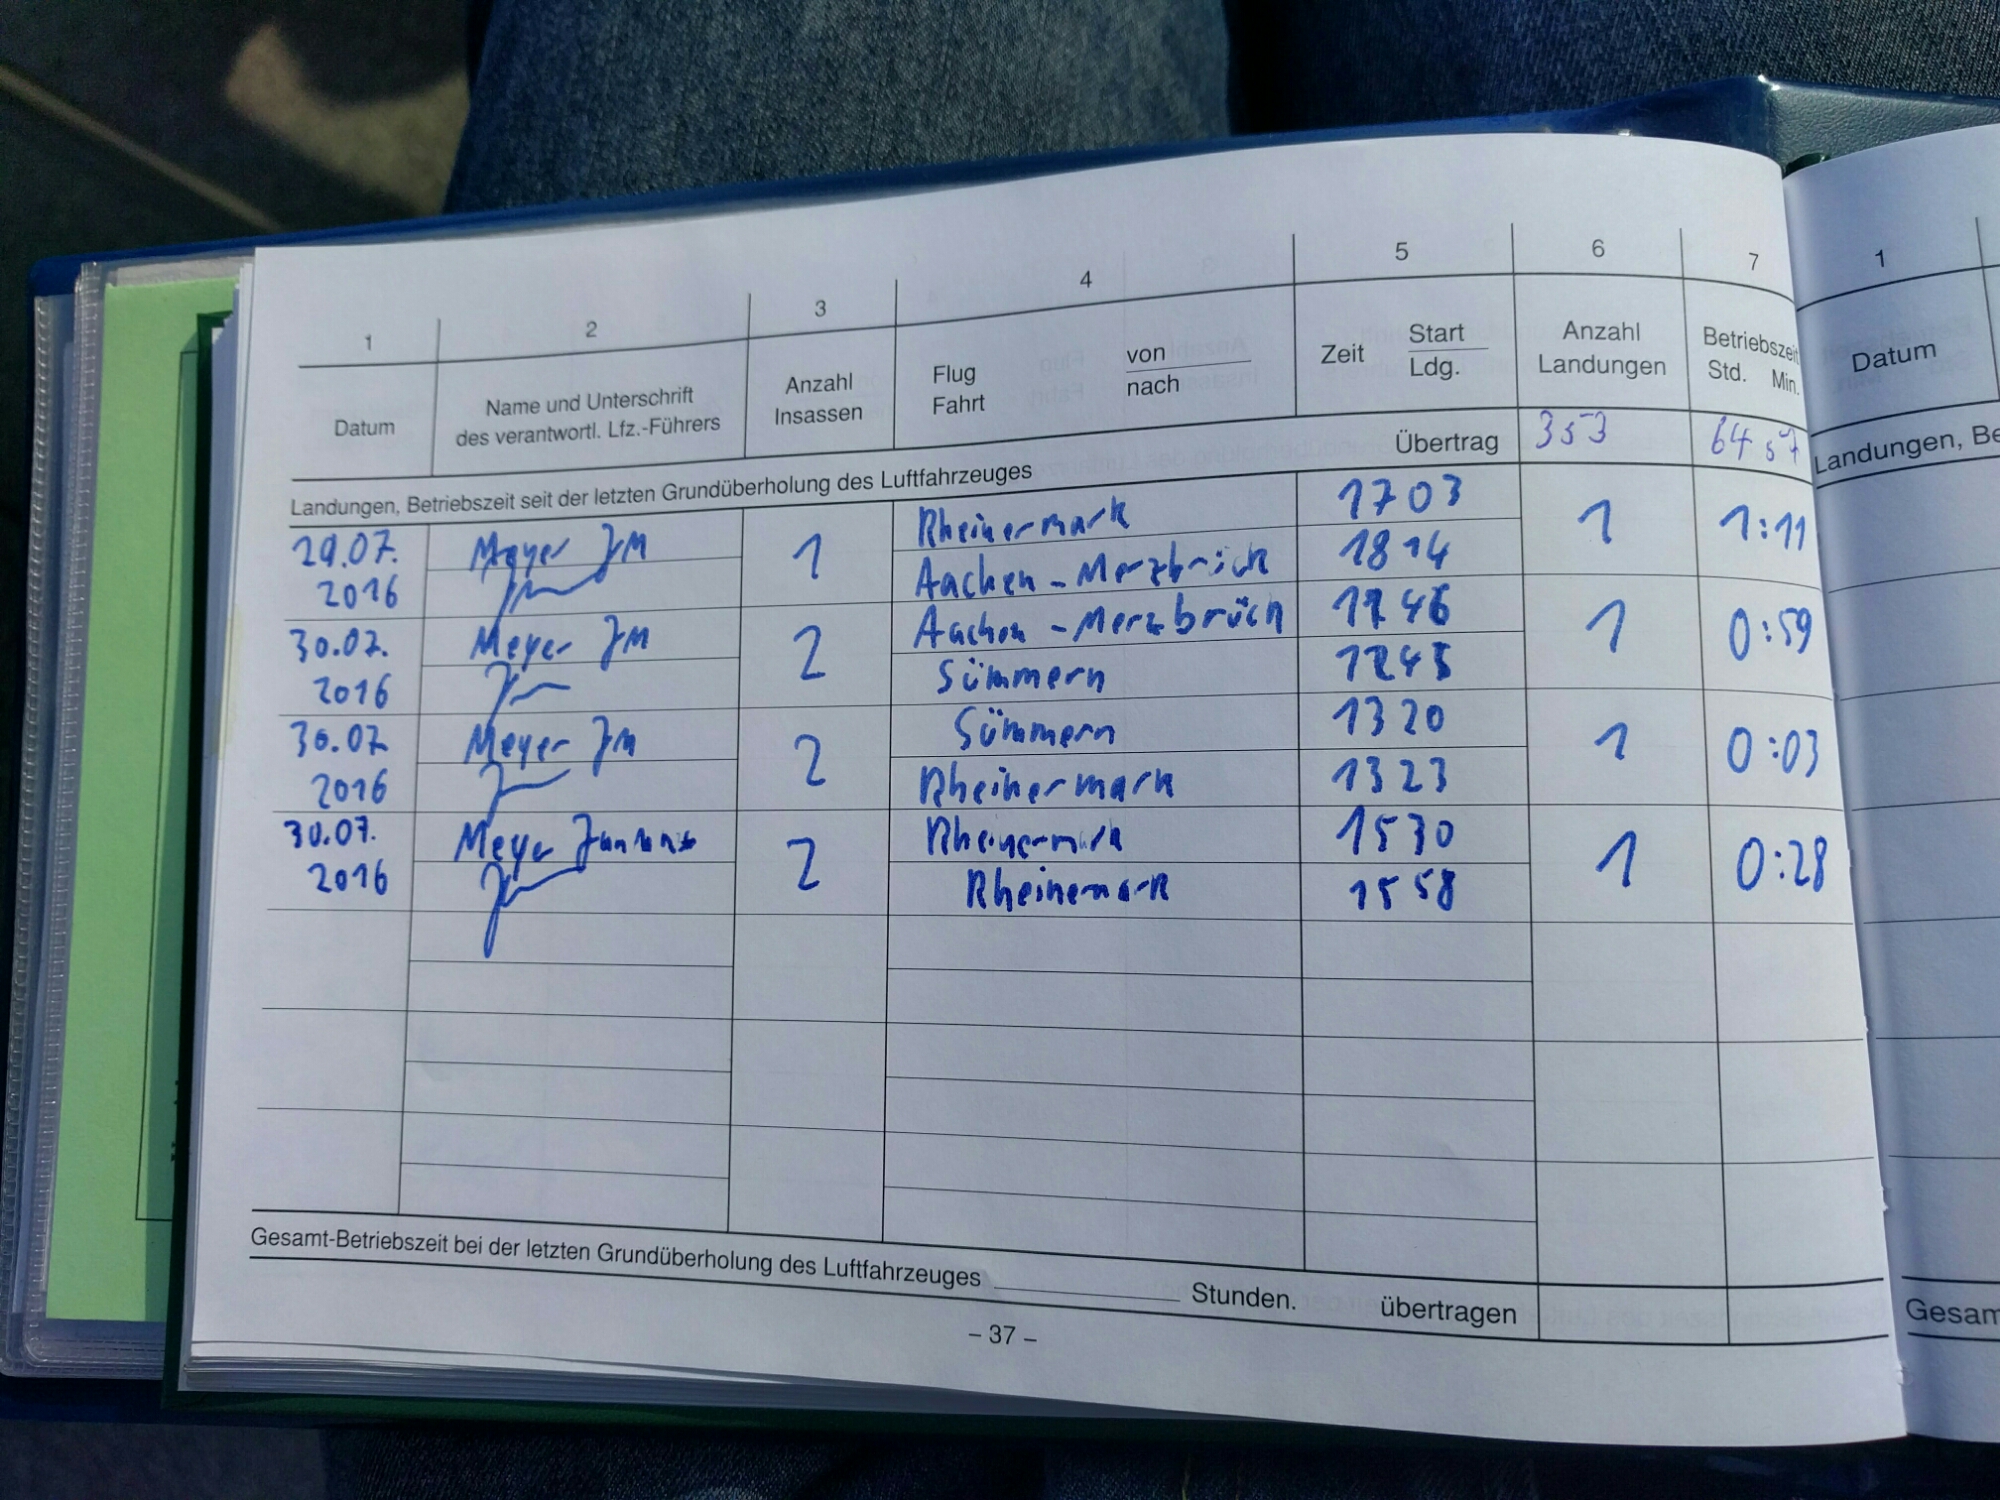 1 2 3 4 5 6 7 1
Datum Name und Unterschrift des verantwortl. Lfz.-Führers Anzahl Insassen Flug Fahrt von nach Zeit Start Ldg. Anzahl Landungen Betriebszeit Std. Min. Datum
Landungen, Betriebszeit seit der letzten Grundüberholung des Luftfahrzeuges Übertrag 353 64 57 Landungen, Be
29.07. Meyer JM 1 Rheinermark 1703 1 1:11
2016 Aachen-Merzbrück 1814
30.07. Meyer JM 2 Aachen-Merzbrück 46 1 0:59
2016 Sümmern
30.07 Meyer JM 2 Sümmern 1320 1 0:03
2016 Rheinermark 1323
30.07. Meyer 2 Rheinermark 1530 1 0:28
2016 Rheinermark 1558
Gesamt-Betriebszeit bei der letzten Grundüberholung des Luftfahrzeuges Stunden. übertragen Gesam
– 37 –